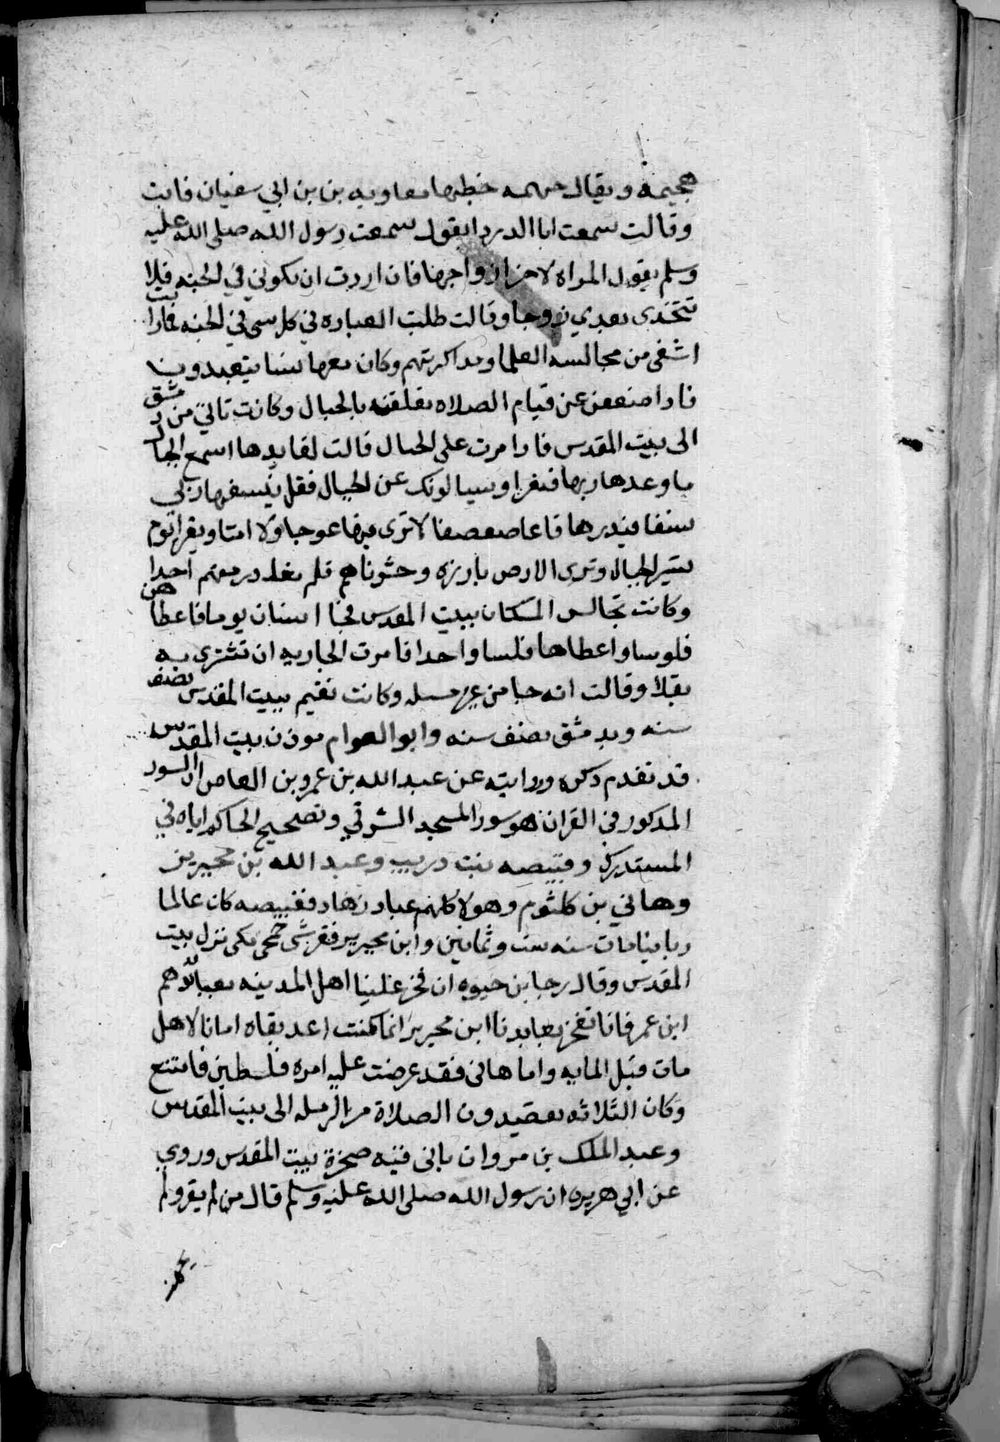 هجيمه ويقال جهيمه خطبها معاويه بن بن ابي سفيان فابت
وقالت سمعت ابا الدردا يقول سمعت رسول الله صلى الله عليه
وسلم يقول المراه لاخر ازواجها فان اردت ان تكوني في الجنه فلا
تتخذي بعدي زوجا وقالت طلبت العباده في كل شي في الجنه فما رايت
اشفى من مجالسه العلما ومذاكرتهم وكان معها نسا يتعبدون
فاذا ضعفن عن قيام الصلاه تعلقنه بالحبال وكانت تاتي من دمشق
الى بيت المقدس فاذا مرت على الجبال قالت لقايدها اسمع الجبال
ما وعدها ربها فيقرا ويسالونك عن الجبال فقل ينسفها ربي
نسفا فيذرها قاعا صفصفا لا ترى فيها عوجا ولا امتا ويقرا يوم
نسير الجبال وترى الارض بارزه وحشرناهم فلم نغادر منهم احدا
وكانت تجالس المساكن ببيت المقدس فجا انسان يوما فاعطاهن
فلوسا واعطاها فلسا واحدا فامرت الجاريه ان تشتري به
بقلا وقالت انه جا من غير مسله وكانت تقيم ببيت المقدس نصف
سنه وبدمشق نصف سنه وابو العوام موذن بيت المقدس
قد تقدم ذكره وروايته عن عبد الله بن عمرو بن العاص ان السور
المذكور في القران هو سور المسجد الشرقي وتصحيح الحاكم اياه في
المستدرك وقبيصه بنت دريب وعبد الله بن محيريز
وهاني بن كلثوم وهولا كلهم عباد زهاد فقبيصه كان عالما
ربانيا مات سنه ست وثمانين وابن محيريز فقرشي جمحي مكي نزل بيت
المقدس وقال رجا بن حيوه ان فخر علينا اهل المدينه بعبادهم
ابن عمر فانا نفخر بعابدنا ابن محيريز انما كنت اعد بقاه امانا لاهل
مات قبل المايه واما هاني فقد عرضت عليه امره فلسطين فامتنع
وكان الثلاثه يقصدون الصلاة من الرمله الى بيت المقدس
وعبد الملك بن مروان باني قبه صخرة بيت المقدس وروي
عن ابي هريره ان رسول الله صلى الله عليه وسلم قال من لم يقرو لم